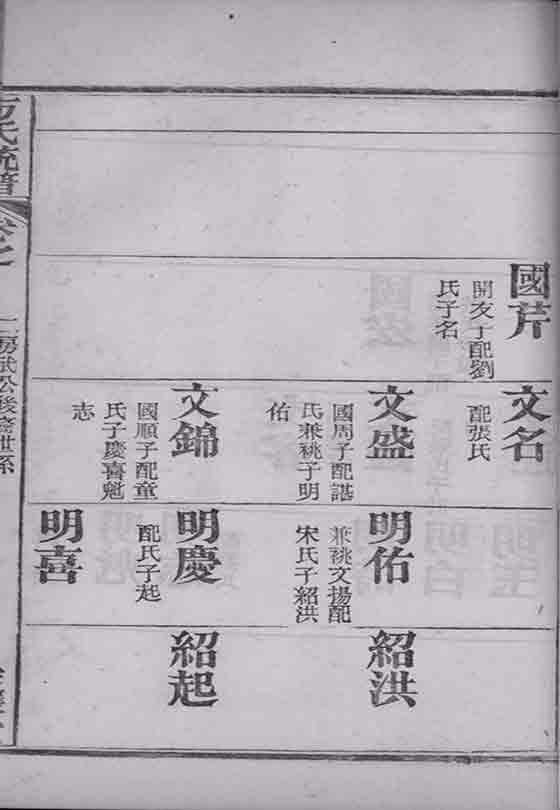 國芹
開友子配劉
氏子名
文名
配張氏
文盛
國周子配諶
氏兼祧子明
佑
文錦
國順子配童
氏子慶喜魁
志
明佑
兼祧文揚配
宋氏子紹洪
明慶
配氏子起
明喜
紹洪
紹起
方氏統譜
卷之
二房武公後裔世系